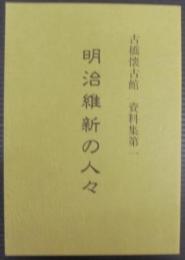 古橋懐古館 資料集第一
明治維新の人々